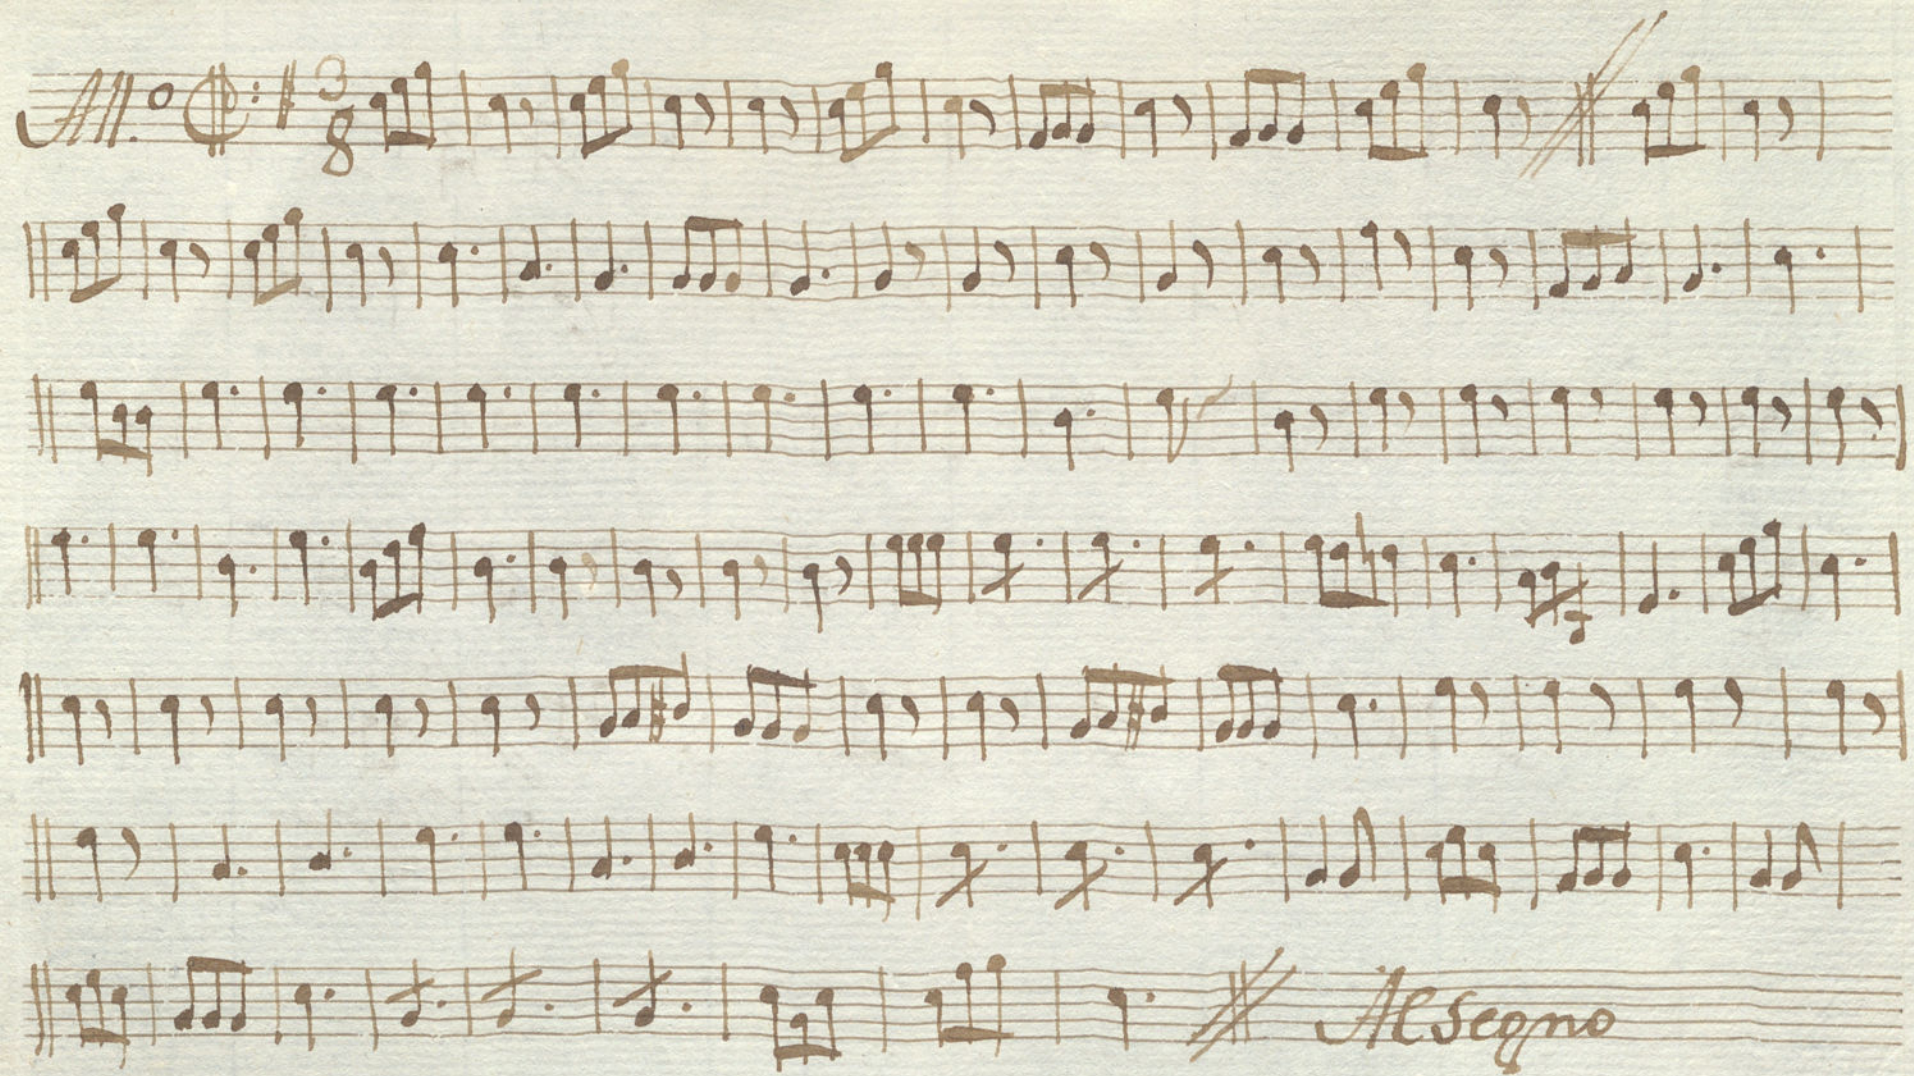 All.o 3/8
Al Segno